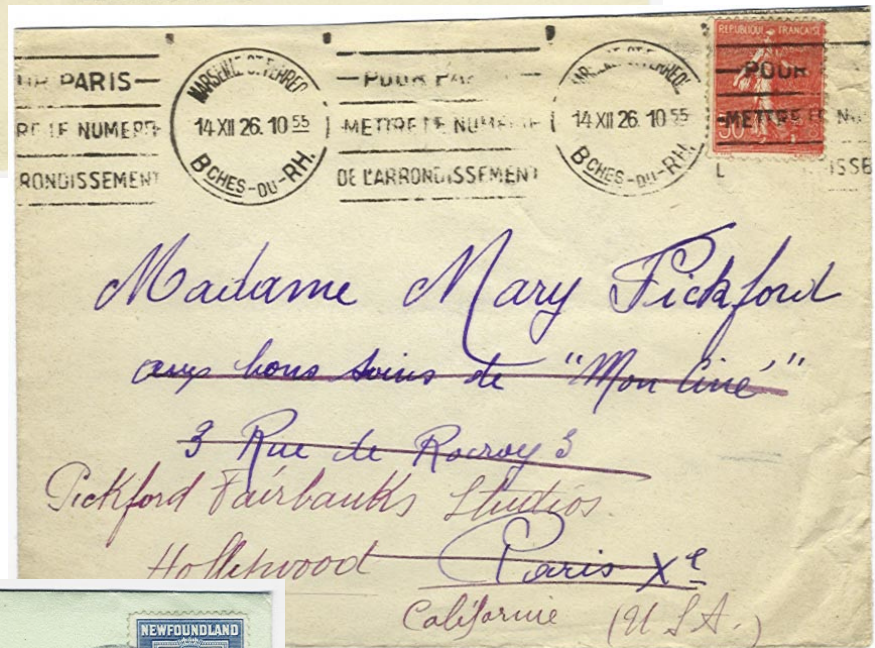 UR PARIS
RE LE NUMERO
RONDISSEMENT
MARSEILLE ST FERREOL
14 XII 26. 10 55
BCHES-DU-RH.
POUR PA
METTRE LE NUME
DE L'ARRONDISSEMENT
MARSEILLE ST FERREOL
14 XII 26. 10 55
BCHES-DU-RH.
REPUBLIQUE FRANÇAISE
POUR
METTRE LE NU
50
L
ISSE
Madame Mary Pickford
aux bons soins de "Mon Ciné"
3 Rue de Rocroy 3
Pickford Fairbanks Studios.
Hollywood Paris Xe
Californie (U S A.)
NEWFOUNDLAND